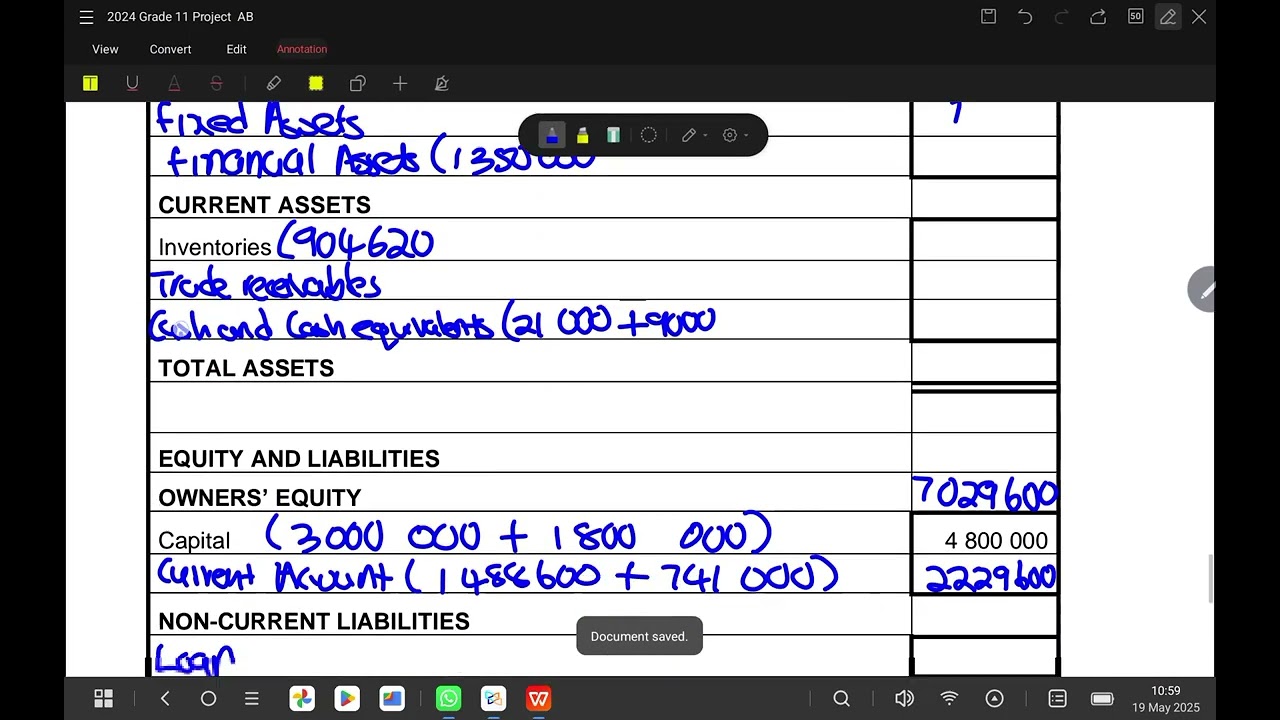 2024 Grade 11 Project AB
50
View Convert Edit Annotation
T U A S
Fixed Assets
Financial Assets (1350 000
CURRENT ASSETS
Inventories (904620
Trade receivables
Cash and Cash equivalents (21 000 + 9000
TOTAL ASSETS
EQUITY AND LIABILITIES
OWNERS' EQUITY 7029600
Capital (3000 000 + 1800 000) 4 800 000
Current Account (1488600 + 741 000) 2229600
NON-CURRENT LIABILITIES
Document saved.
Loan
10:59
19 May 2025